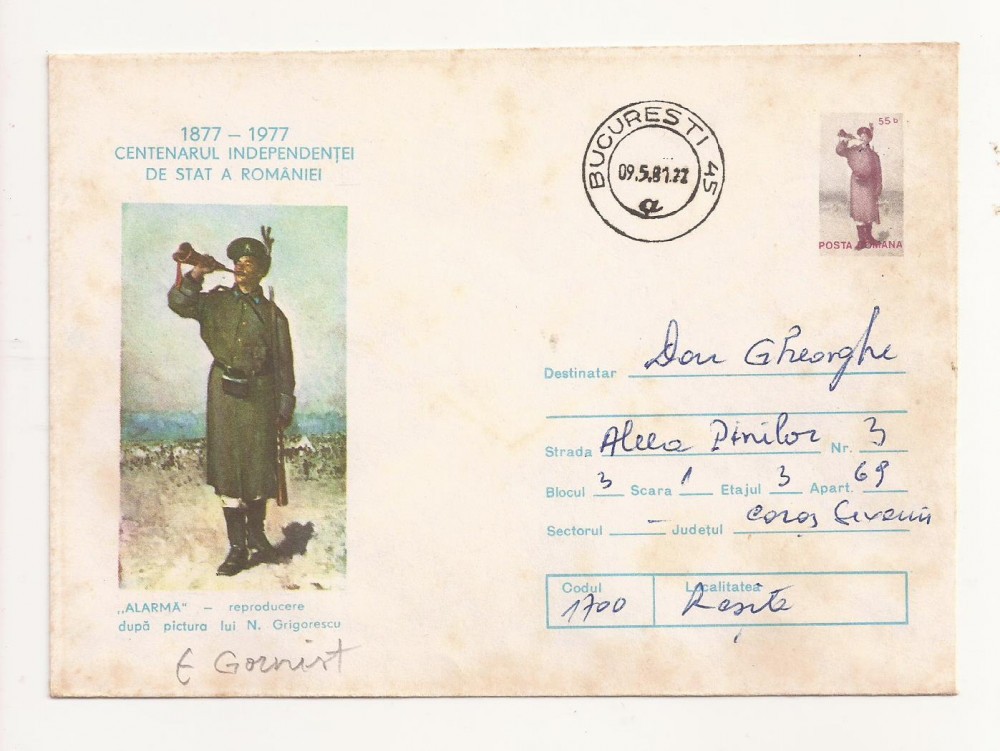 1877 – 1977
CENTENARUL INDEPENDENŢEI
DE STAT A ROMÂNIEI
BUCURESTI 45
09.5.81.22
a
55 b
POSTA ROMANA
Destinatar Don Gheorghe
Strada Aleea Pinilor Nr. 3
Blocul 3 Scara 1 Etajul 3 Apart. 69
Sectorul – Județul Caraș Severin
Codul Localitatea
1700 Reșița
„ALARMĂ" – reproducere
după pictura lui N. Grigorescu
E Gornist